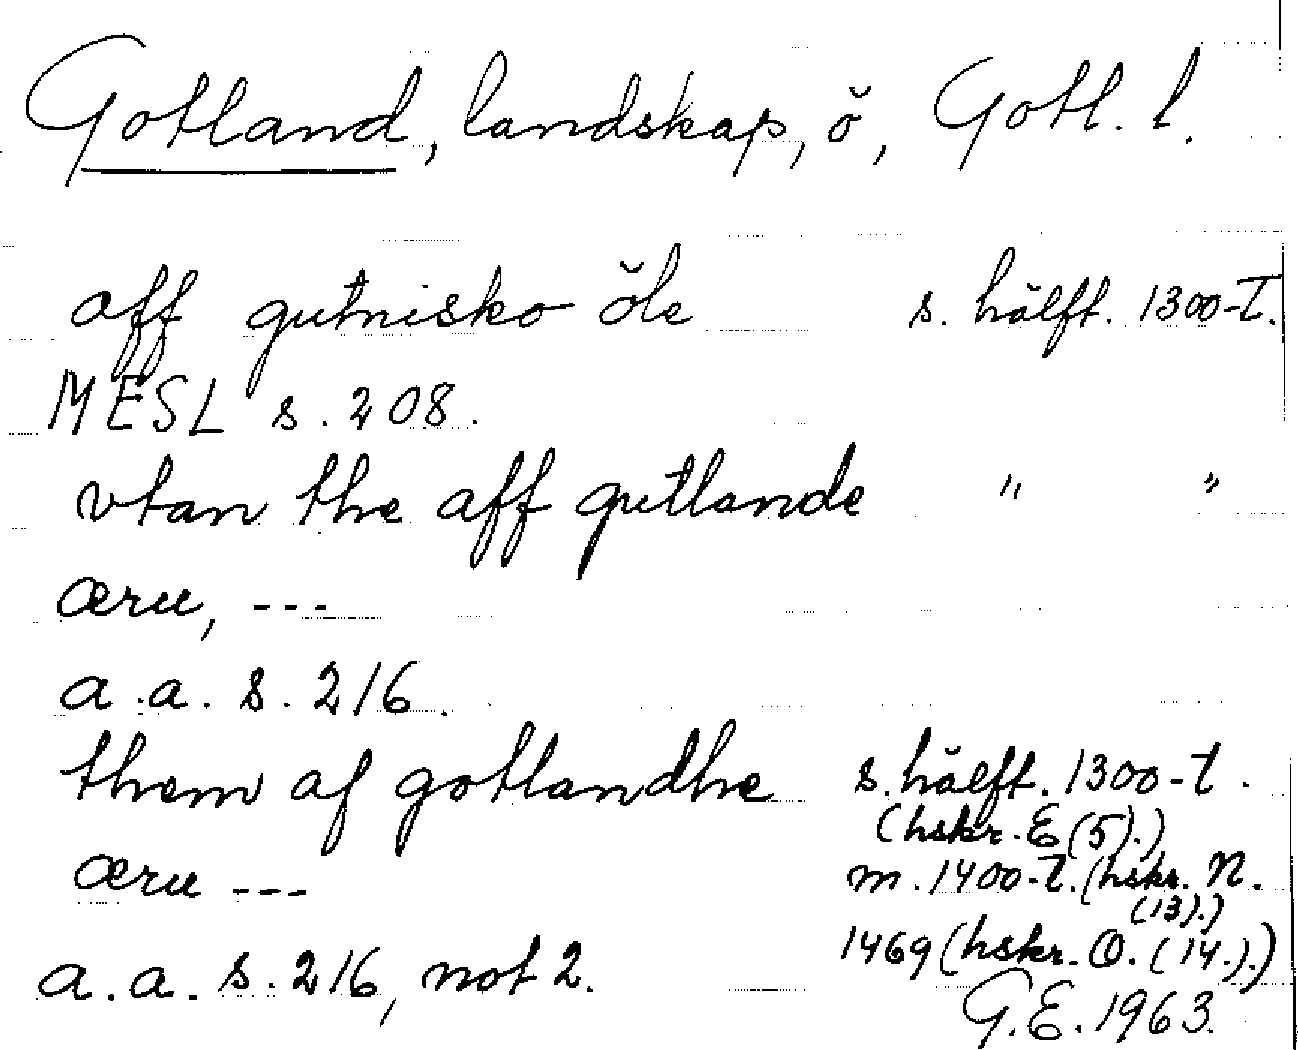 Gotland, landskap, ö, Gotl. l.
aff gutnisko öle s. hälft. 1300-t.
MESL s. 208.
vtan the aff gutlande " "
æru, ---
a.a. s. 216.
them af gotlandhe s. hälft. 1300-t.
(hskr. E (5).)
æru --- m. 1400-t. (hskr. N.
(13).)
1469 (hskr. O. (14.).)
a.a. s. 216, not 2.
G.E. 1963.